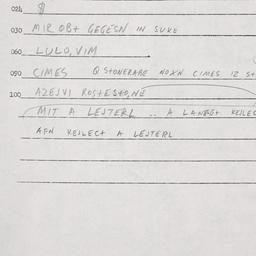 024
030 MIR OBT GEGESN IN SUKE
060 LULO,VIM
090 CIMES Q STONERABE NOXN CIMES IZ ST
100 AZEJVI ROSTESTO,NE
MIT A LEJTERL .. A LANGGT KEILEC
AFN KEILECT A LEJTERL